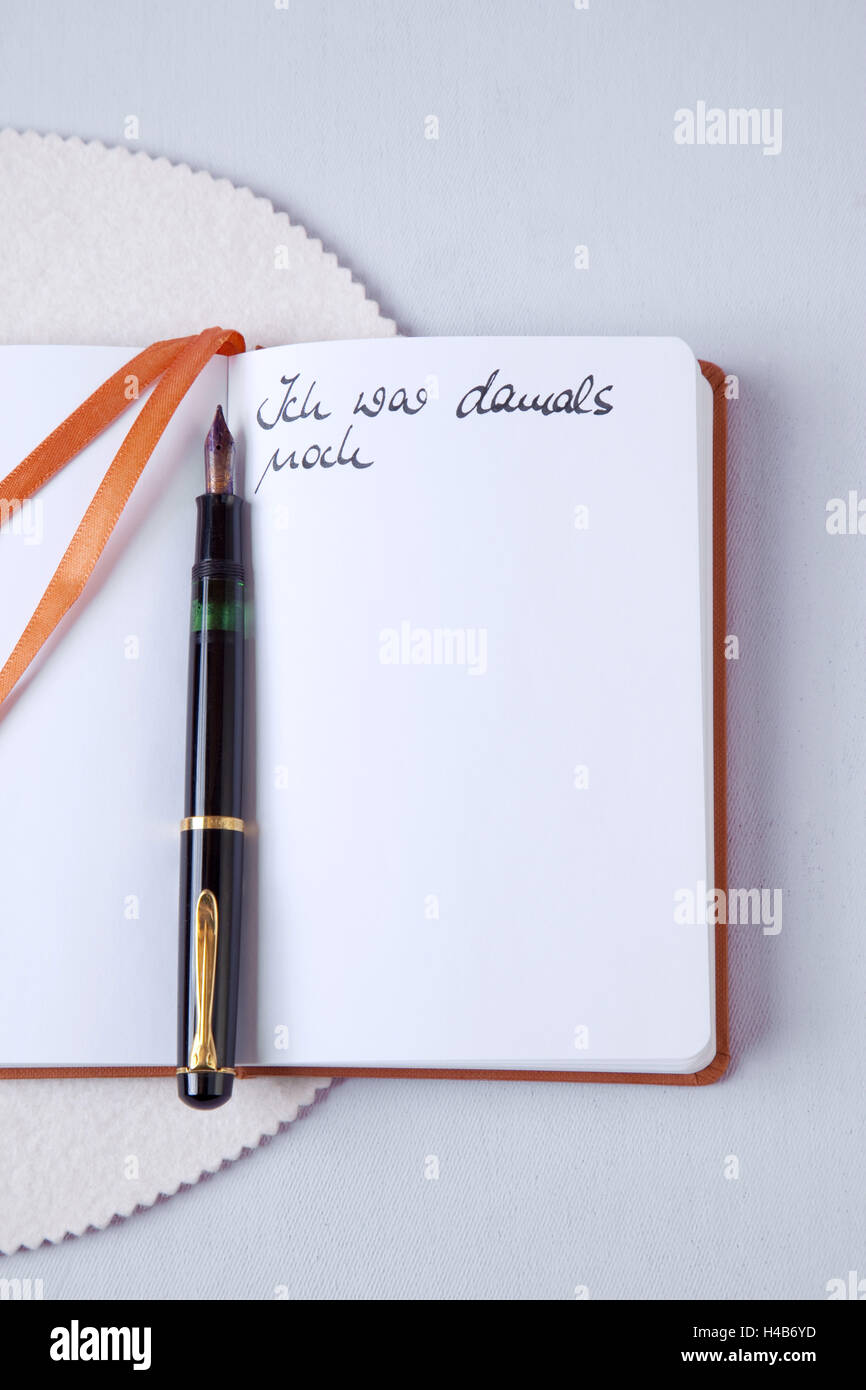 Ich war damals
noch
alamy
alamy
alamy
alamy
Image ID: H4B6YD
www.alamy.com